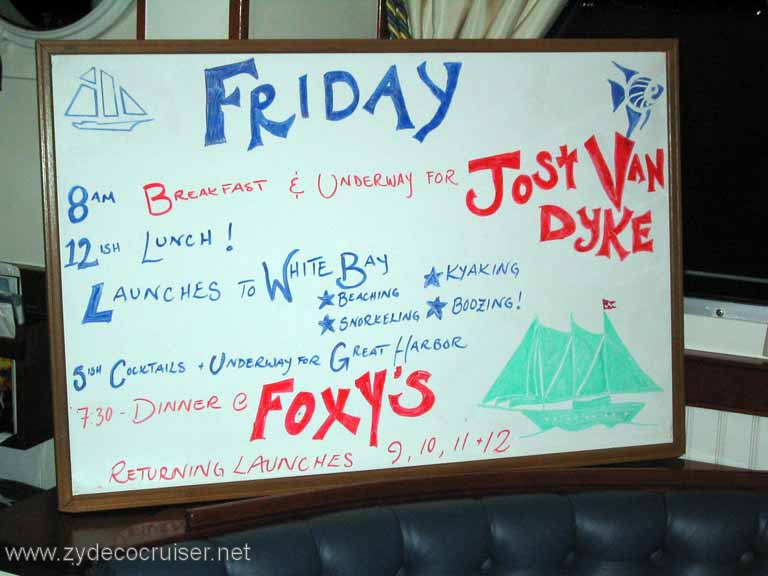 FRIDAY
8AM BREAKFAST & UNDERWAY FOR JOST VAN DYKE
12ISH LUNCH!
LAUNCHES TO WHITE BAY
★ BEACHING ★ KYAKING
★ SNORKELING ★ BOOZING!
5ISH COCKTAILS + UNDERWAY FOR GREAT HARBOR
7:30 - DINNER @ FOXY'S
RETURNING LAUNCHES 9, 10, 11 + 12
www.zydecocruiser.net